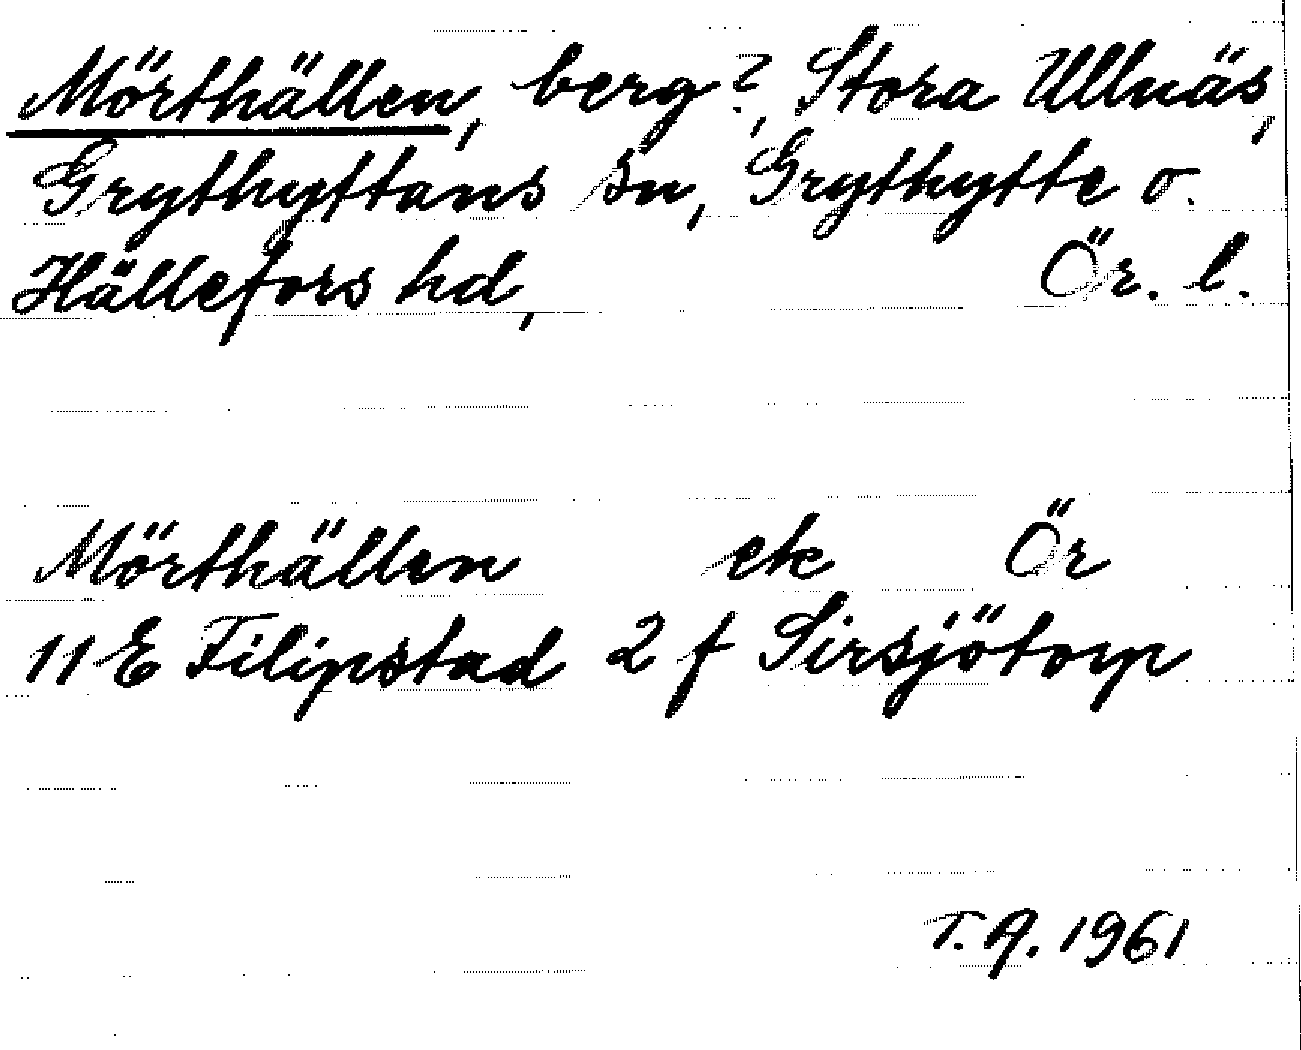 Mörthällen, berg?, Stora Ullnäs,
Grythyttans sn, Grythytte o.
Hällefors hd, Ör. l.
Mörthällen ek Ör
11 E Filipstad 2 f Sirsjötorp
T.A. 1961